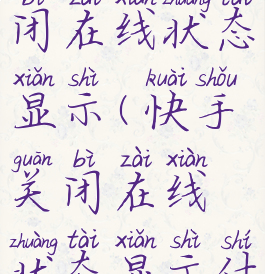 bì zài xiàn zhuàng tài
闭在线状态
xiǎn shì kuài shǒu
显示(快手
guān bì zài xiàn
关闭在线
zhuàng tài xiǎn shì shí
状态显示什